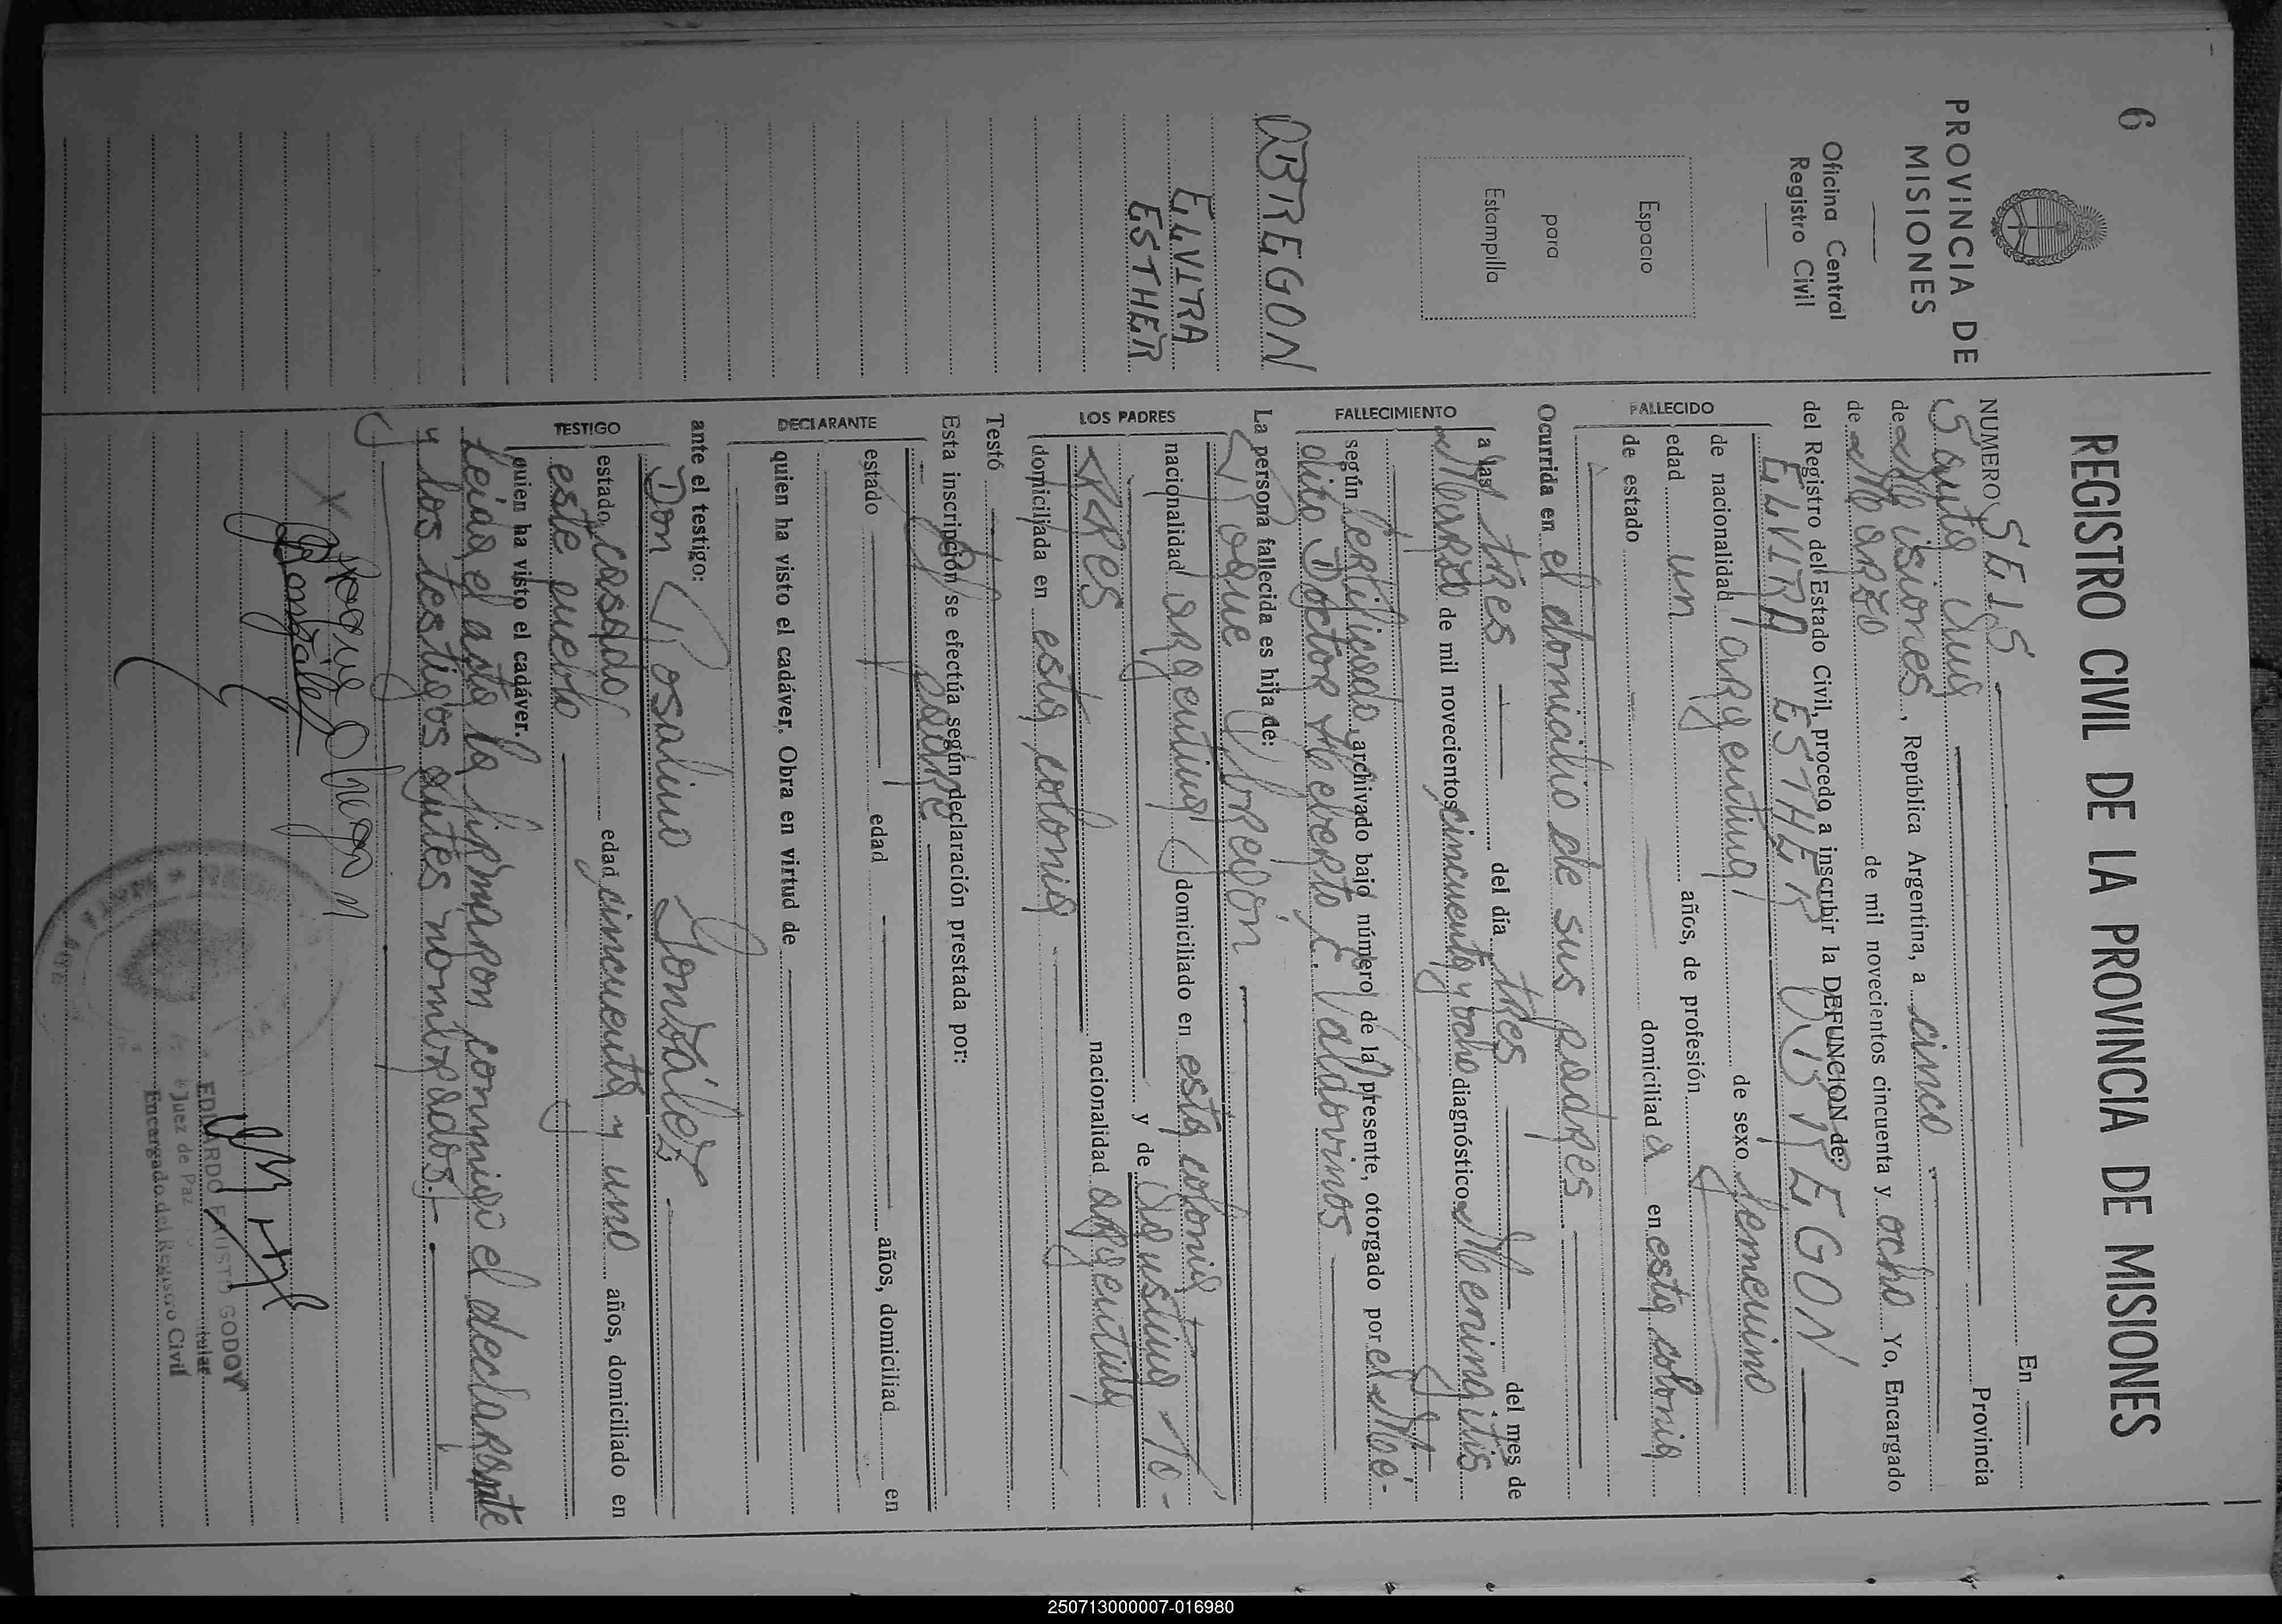 6
PROVINCIA DE
MISIONES
Oficina Central
Registro Civil
Espacio
para
Estampilla
OBREGON
ELVIRA
ESTHER
REGISTRO CIVIL DE LA PROVINCIA DE MISIONES
NUMERO SEIS En
Santa Ana Provincia
de Misiones, República Argentina, a cinco
de Marzo de mil novecientos cincuenta y ocho Yo, Encargado
del Registro del Estado Civil, procedo a inscribir la DEFUNCION de:
ELVIRA ESTHER OBREGON
FALLECIDO
de nacionalidad argentina de sexo femenino
edad un años, de profesión
de estado domiciliad a en esta colonia
Ocurrida en el domicilio de sus padres
FALLECIMIENTO
a las tres del día tres del mes de
Marzo de mil novecientos cincuenta y ocho diagnóstico Meningitis
según certificado, archivado bajo número de la presente, otorgado por el Mé-
dico Doctor Heberto L. Valdovinos
La persona fallecida es hija de:
LOS PADRES
Roque Obregón
nacionalidad argentina domiciliado en esta colonia
y de Agustina To-
rres nacionalidad argentina
domiciliada en esta colonia
Testó
Esta inscripción se efectúa según declaración prestada por:
DECLARANTE
El padre
estado edad años, domiciliad en
quien ha visto el cadáver. Obra en virtud de
ante el testigo:
TESTIGO
Don Rosalino González
estado casado edad cincuenta y uno años, domiciliado en
este pueblo
quien ha visto el cadáver.
Leida el acta la firmaron conmigo el declarante
y los testigos antes nombrados.
Roque Obregon
González
EDUARDO FAUSTO GODOY
Juez de Paz Titular
Encargado del Registro Civil
250713000007-016980